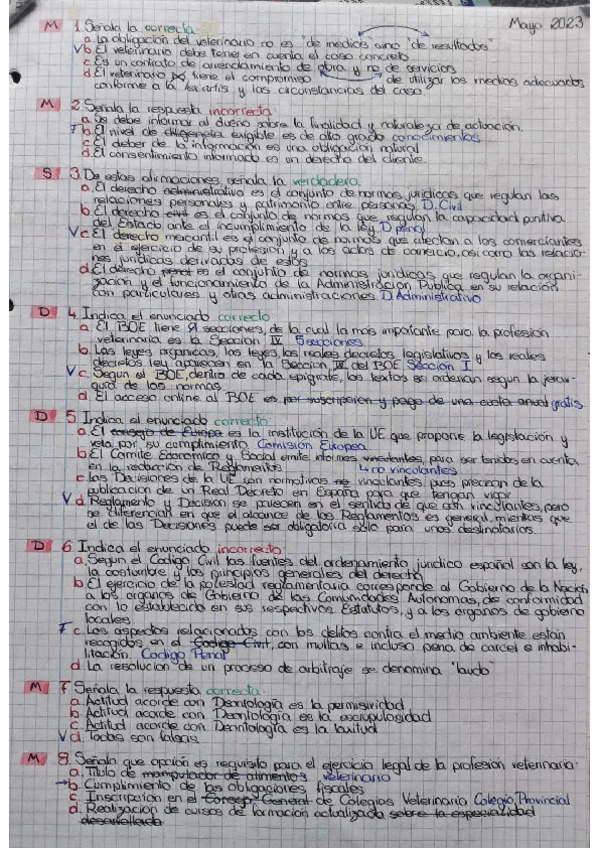 Mayo 2023
M 1. Señala la correcta:
a. La obligación del veterinario no es "de medios" sino "de resultados"
V b. El veterinario debe tener en cuenta el caso concreto
c. Es un contrato de arrendamiento de obra y no de servicios
d. El veterinario no tiene el compromiso de utilizar los medios adecuados
conforme a la lex artis y las circunstancias del caso
M 2. Señala la respuesta incorrecta:
a. Se debe informar al dueño sobre la finalidad y naturaleza de actuación.
F b. El nivel de diligencia exigible es de alto grado conocimientos
c. El deber de la información es una obligación natural
d. El consentimiento informado es un derecho del cliente.
S 3. De estas afirmaciones señala la verdadera
a. El derecho administrativo es el conjunto de normas jurídicas que regulan las
relaciones personales y patrimonio entre personas D. Civil
b. El derecho civil es el conjunto de normas que regulan la capacidad punitiva
del Estado ante el incumplimiento de la ley D penal
V c. El derecho mercantil es el conjunto de normas que afectan a los comerciantes
en el ejercicio de su profesión y a los actos de comercio, así como las relacio-
nes jurídicas derivadas de estos
d. El derecho penal es el conjunto de normas jurídicas que regulan la organi-
zación y el funcionamiento de la Administración Pública en su relación
con particulares y otras administraciones. D Administrativo
D 4. Indica el enunciado correcto
a. El BOE tiene secciones, de la cual la más importante para la profesión
veterinaria es la Sección IV 5 secciones
b. Las leyes orgánicas, las leyes, los reales decretos legislativos y los reales
decretos ley aparecen en la Sección IV del BOE Sección I
V c. Según el BOE, dentro de cada epígrafe, los textos se ordenan según la jerar-
quía de las normas
d. El acceso online al BOE es por suscripción y pago de una cuota anual gratis
D 5. Indica el enunciado correcto:
a. El consejo de Europa es la institución de la UE que propone la legislación y
vela por su cumplimiento Comisión Europea
b. El Comité Económico y Social emite informes vinculantes, para ser tenidos en cuenta
en la redacción de Reglamentos ↳ no vinculantes
c. Las Decisiones de la UE son normativas no vinculantes, pues precisan de la
publicación de un Real Decreto en España para que tengan vigor
V d. Reglamento y Decisión se parecen en el sentido de que son vinculantes, pero
se diferencian en que el alcance de los Reglamentos es general, mientras que
el de las Decisiones puede ser obligatoria sólo para unos destinatarios
D 6. Indica el enunciado incorrecto:
a. Según el Código Civil las fuentes del ordenamiento jurídico español son la ley,
la costumbre y los principios generales del derecho
b. El ejercicio de la potestad reglamentaria corresponde al Gobierno de la Nación,
a los órganos de Gobierno de las Comunidades Autónomas, de conformidad
con lo establecido en sus respectivos Estatutos, y a los órganos de gobierno
locales.
F c. Los aspectos relacionados con los delitos contra el medio ambiente están
recogidos en el Código Civil, con multas e incluso pena de cárcel e inhabi-
litación. Código Penal
d. La resolución de un proceso de arbitraje se denomina "laudo"
M 7. Señala la respuesta correcta:
a. Actitud acorde con Deontología es la permisividad
b. Actitud acorde con Deontología es la escrupulosidad
c. Actitud acorde con Deontología es la laxitud
V d. Todas son falsas
M 8. Señala que opción es requisito para el ejercicio legal de la profesión veterinaria:
a. Título de manipulador de alimentos veterinario
→ b. Cumplimiento de las obligaciones fiscales
c. Inscripción en el Consejo General de Colegios Veterinaria Colegio Provincial
d. Realización de cursos de formación actualizada sobre la especialidad
desarrollada